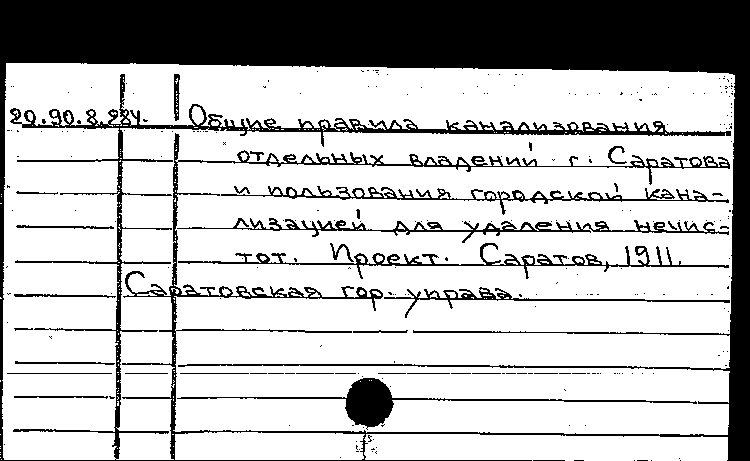 20.90.8.284. Общие правила канализования
отдельных владений г. Саратова
и пользования городской кана-
лизацией для удаления нечис-
тот. Проект. Саратов, 1911.
Саратовская гор. управа.